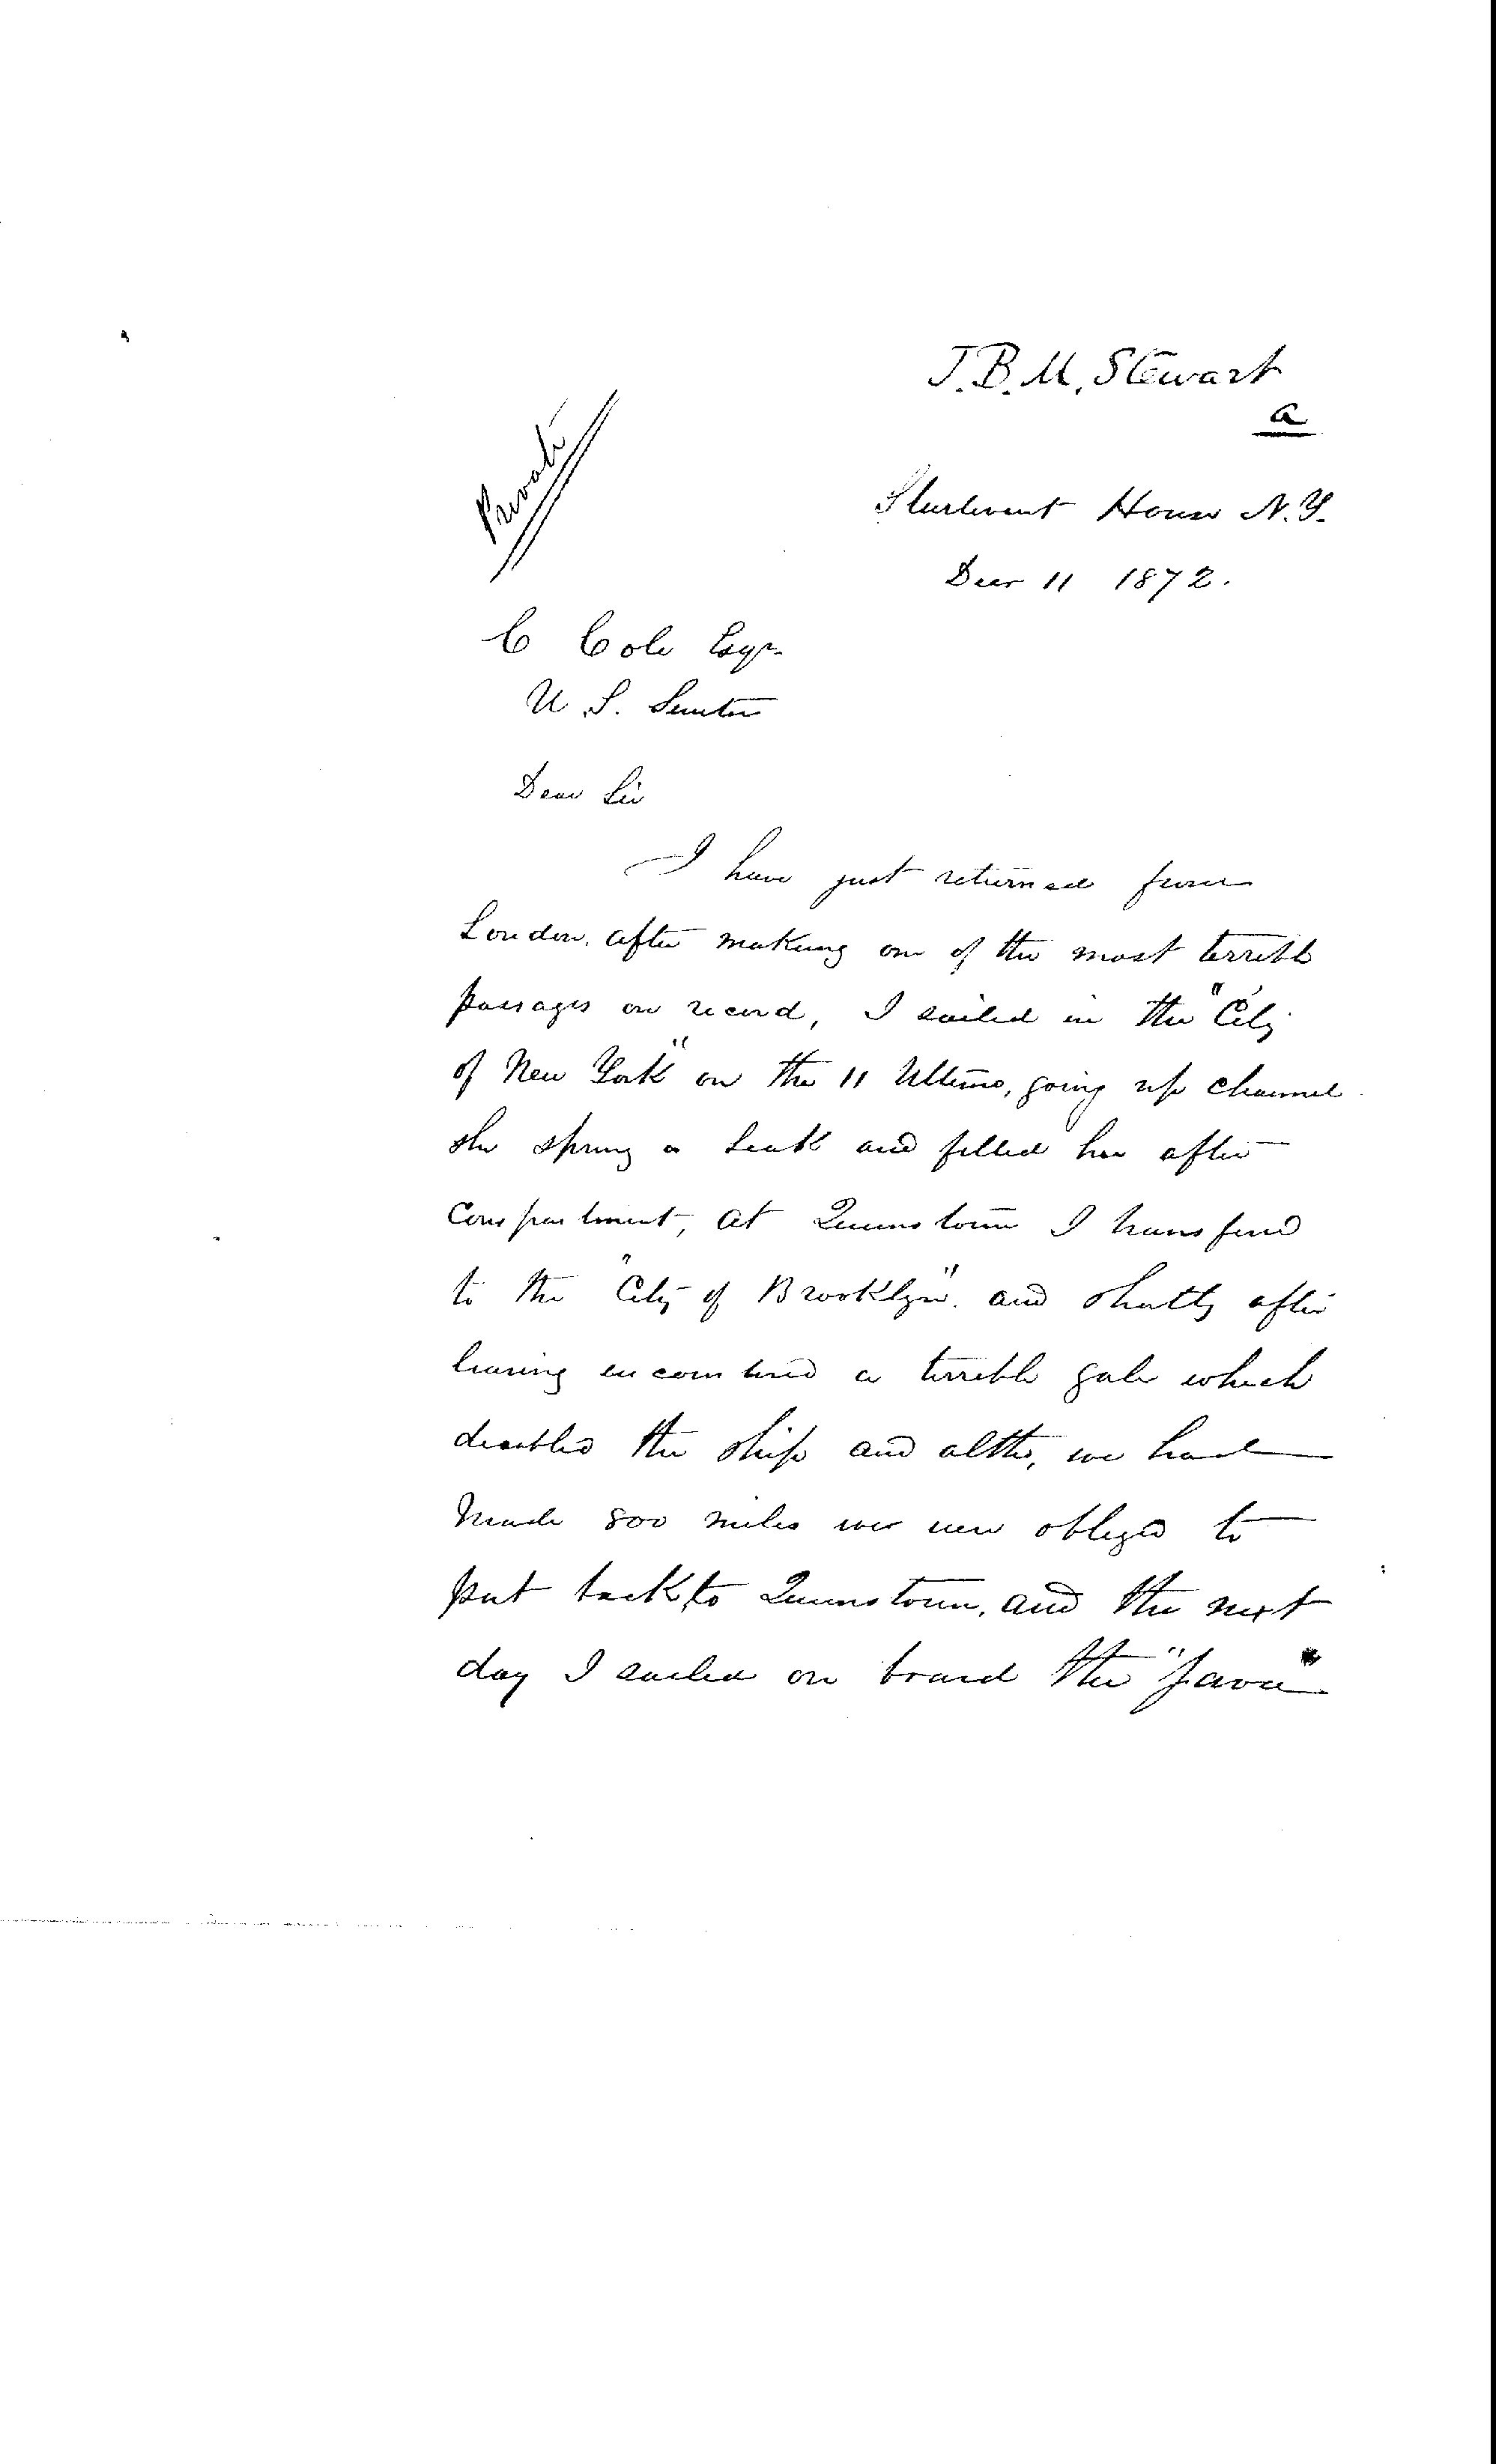 J. B. M. Stewart
a
Private
Sturtevant House N.Y.
Decr 11 1872.
C Cole Esqr.
U. S. Senator
Dear Sir
I have just returned from
London, after making one of the most terrible
passages on record, I sailed in the "City
of New York" on the 11 Ultimo, going up channel
she sprung a leak and filled her after
Compartment, at Queenstown I transfered
to the "City of Brooklyn". and shortly after
leaving encountered a terrible gale which
disabled the ship and altho, we had
made 800 miles were obliged to
put back to Queenstown, and the next
day I sailed on board the "Java"